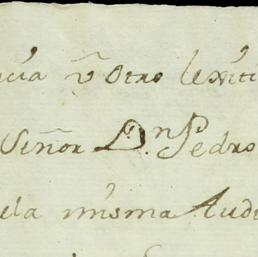 cia ũ Otro lexiti
Señor D.ⁿ Pedro
ela misma Audi